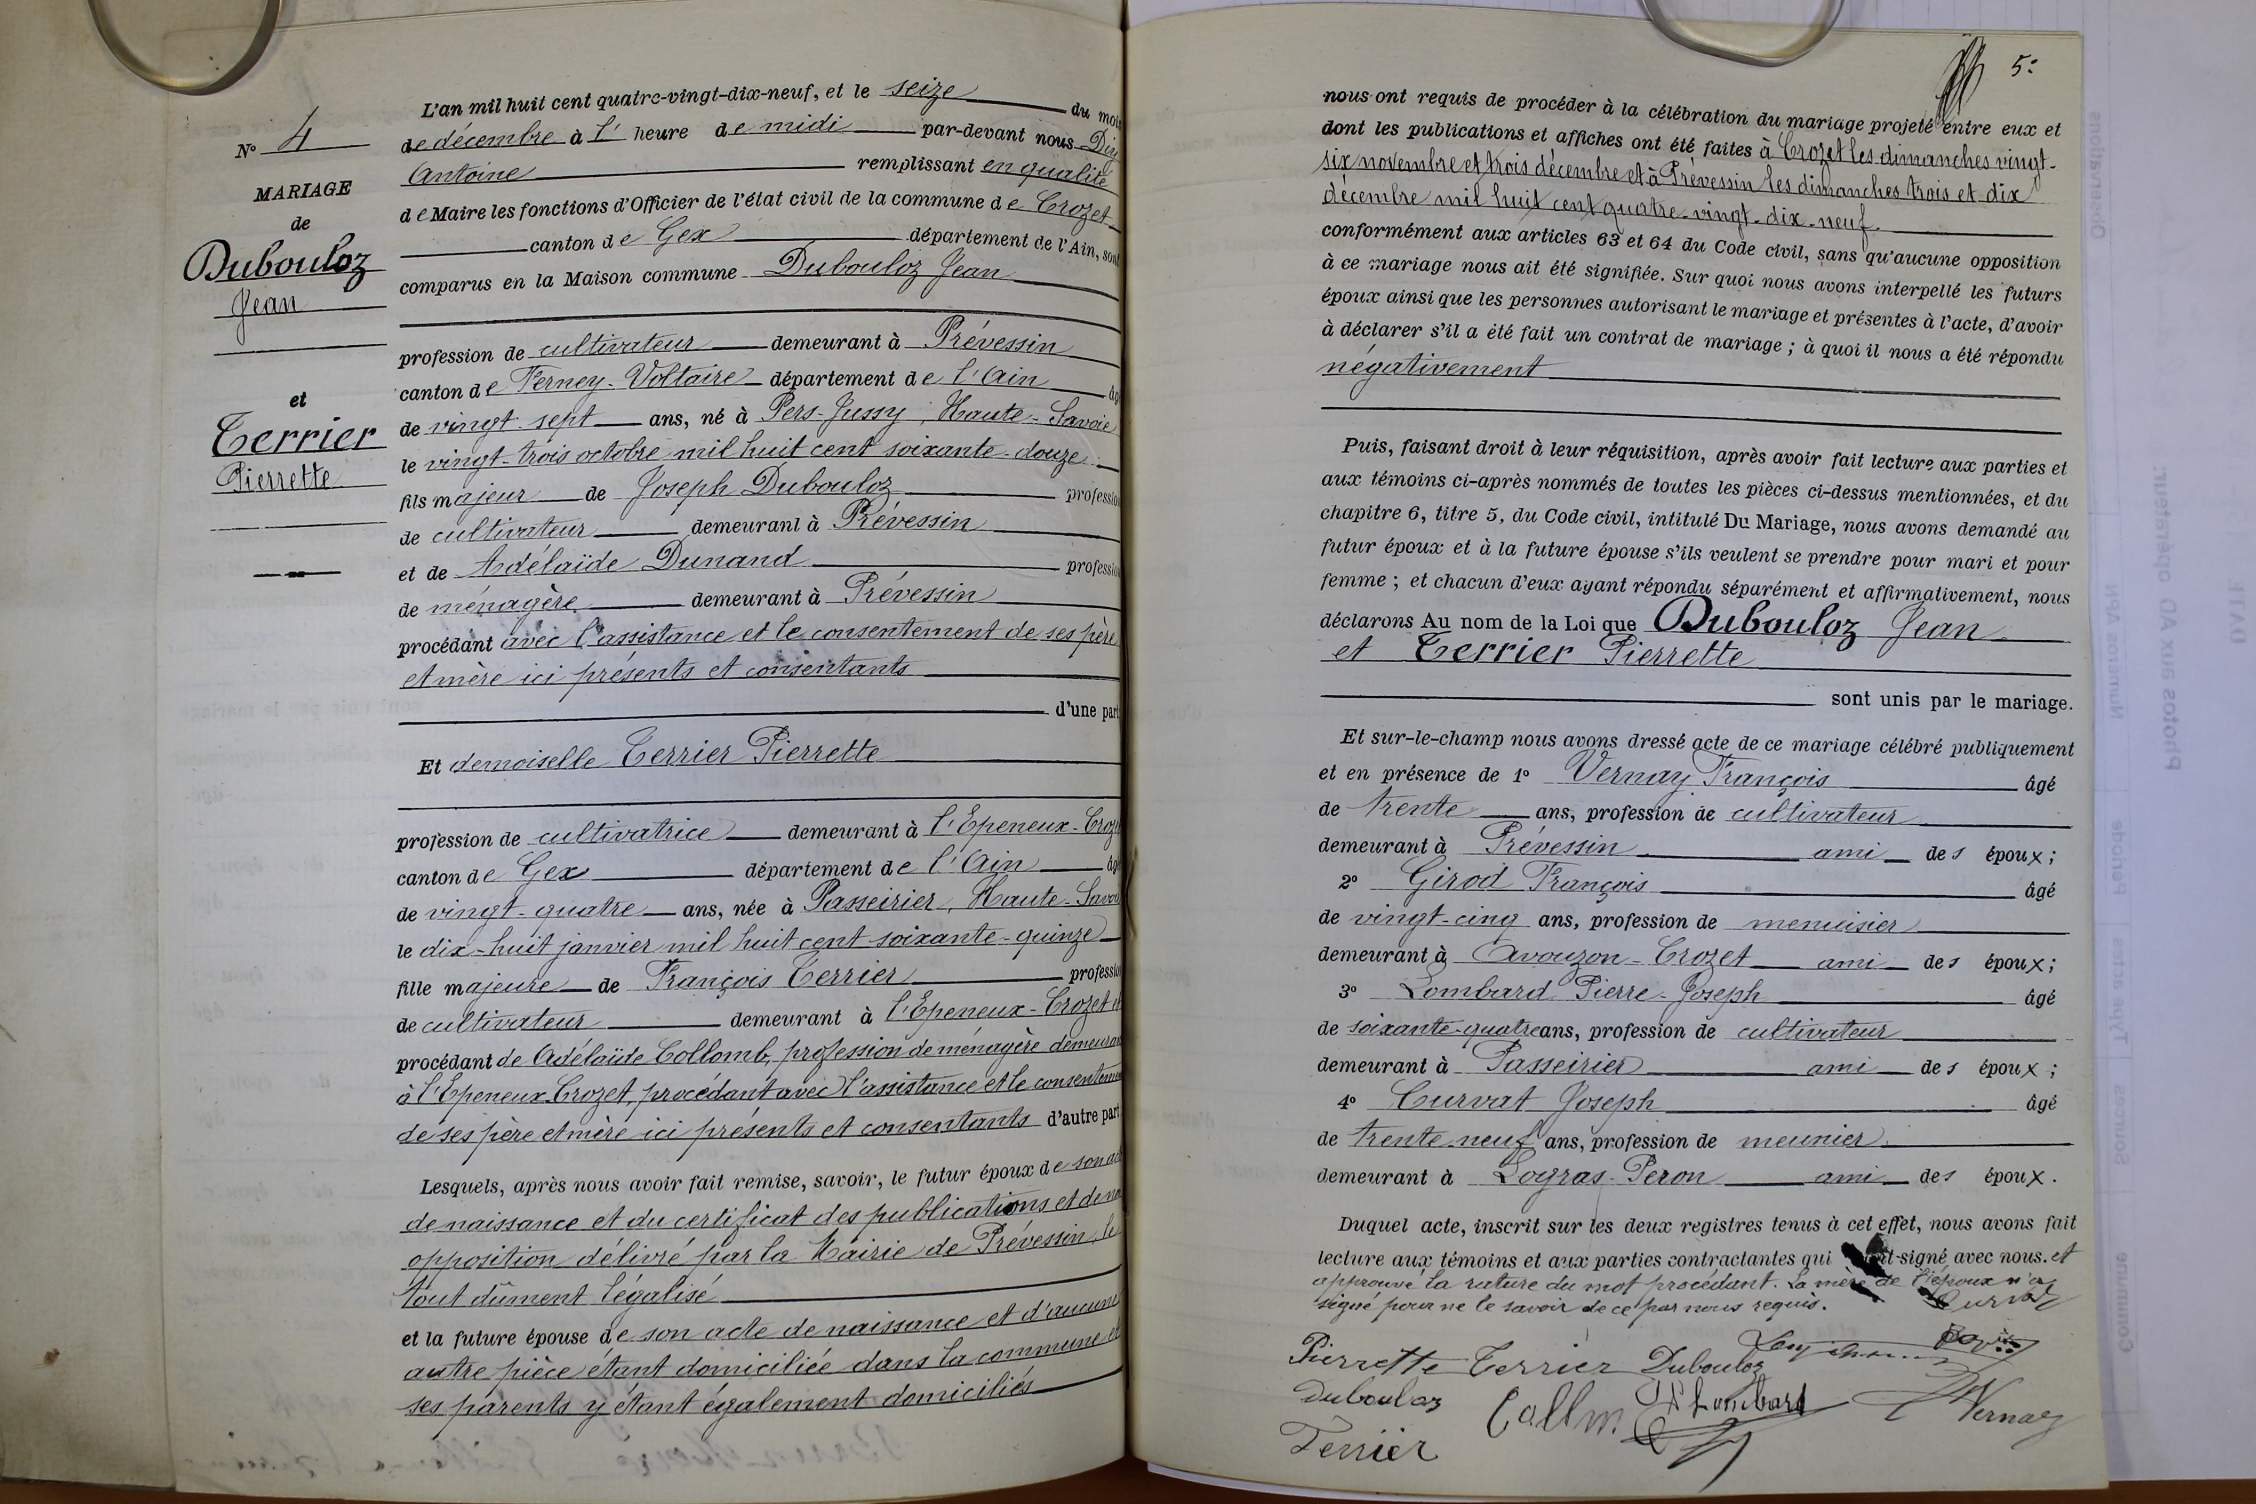 N° 4
MARIAGE
de
Dubouloz
Jean
et
Terrier
Pierrette
L'an mil huit cent quatre-vingt-dix-neuf, et le seize du mois
de décembre à l' heure de midi par-devant nous
Antoine remplissant en qualité
de Maire les fonctions d'Officier de l'état civil de la commune de Crozet
canton de Gex département de l'Ain, sont
comparus en la Maison commune Dubouloz Jean
profession de cultivateur demeurant à Prévessin
canton de Ferney-Voltaire département de l'Ain âgé
de vingt-sept ans, né à Pers-Jussy, Haute-Savoie
le vingt-trois octobre mil huit cent soixante-douze
fils majeur de Joseph Dubouloz profession
de cultivateur demeurant à Prévessin
et de Adélaïde Dunand profession
de ménagère demeurant à Prévessin
procédant avec l'assistance et le consentement de ses père
et mère ici présents et consentants
d'une part
Et demoiselle Terrier Pierrette
profession de cultivatrice demeurant à l'Epeneux-Crozet
canton de Gex département de l'Ain âgé
de vingt-quatre ans, née à Passeirier, Haute-Savoie
le dix-huit janvier mil huit cent soixante-quinze
fille majeure de François Terrier profession
de cultivateur demeurant à l'Epeneux-Crozet et
procédant de Adélaïde Collomb, profession de ménagère demeurant
à l'Epeneux-Crozet, procédant avec l'assistance et le consentement
de ses père et mère ici présents et consentants d'autre part
Lesquels, après nous avoir fait remise, savoir, le futur époux de son acte
de naissance et du certificat des publications et de non
opposition délivré par la Mairie de Prévessin, le
tout dûment légalisé
et la future épouse de son acte de naissance et d'aucune
autre pièce étant domiciliée dans la commune et
ses parents y étant également domiciliés
5
nous ont requis de procéder à la célébration du mariage projeté entre eux et
dont les publications et affiches ont été faites à Crozet les dimanches vingt-
six novembre et trois décembre et à Prévessin les dimanches trois et dix
décembre mil huit cent quatre-vingt-dix-neuf.
conformément aux articles 63 et 64 du Code civil, sans qu'aucune opposition
à ce mariage nous ait été signifiée. Sur quoi nous avons interpellé les futurs
époux ainsi que les personnes autorisant le mariage et présentes à l'acte, d'avoir
à déclarer s'il a été fait un contrat de mariage ; à quoi il nous a été répondu
négativement
Puis, faisant droit à leur réquisition, après avoir fait lecture aux parties et
aux témoins ci-après nommés de toutes les pièces ci-dessus mentionnées, et du
chapitre 6, titre 5, du Code civil, intitulé Du Mariage, nous avons demandé au
futur époux et à la future épouse s'ils veulent se prendre pour mari et pour
femme ; et chacun d'eux ayant répondu séparément et affirmativement, nous
déclarons Au nom de la Loi que Dubouloz Jean
et Terrier Pierrette
sont unis par le mariage.
Et sur-le-champ nous avons dressé acte de ce mariage célébré publiquement
et en présence de 1° Vernay François âgé
de trente ans, profession de cultivateur
demeurant à Prévessin ami des époux ;
2° Girod François âgé
de vingt-cinq ans, profession de menuisier
demeurant à Avouzon-Crozet ami des époux ;
3° Lombard Pierre-Joseph âgé
de soixante-quatre ans, profession de cultivateur
demeurant à Passeirier ami des époux ;
4° Curvat Joseph âgé
de trente-neuf ans, profession de meunier
demeurant à Logras-Peron ami des époux.
Duquel acte, inscrit sur les deux registres tenus à cet effet, nous avons fait
lecture aux témoins et aux parties contractantes qui ont signé avec nous. et
approuvé la rature du mot procédant. La mère de l'époux n'a
signé pour ne le savoir de ce par nous requis. Curvat
Pierrette Terrier Dubouloz
Dubouloz Lombard Vernay
Terrier